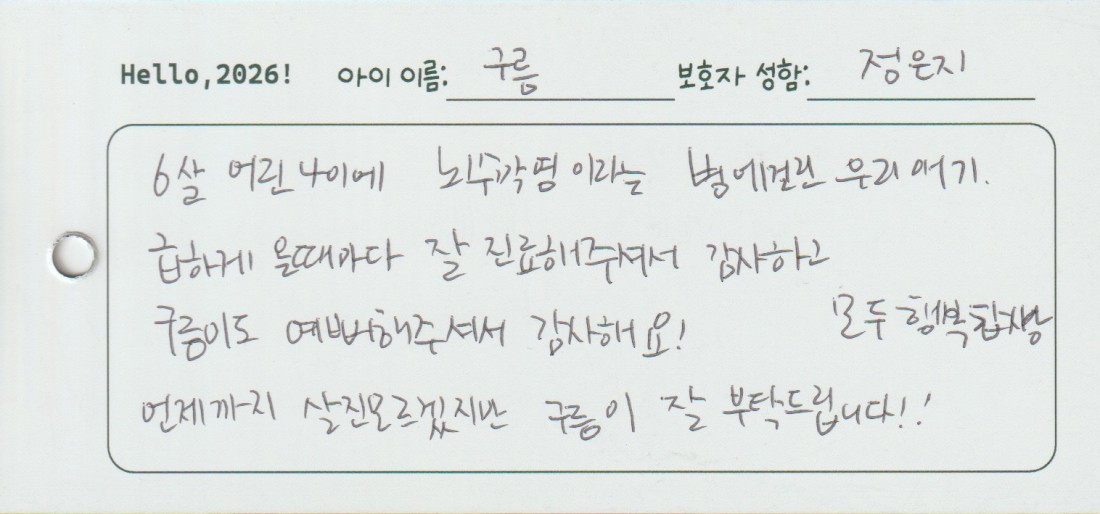 Hello,2026! 아이 이름: 구름 보호자 성함: 정은지
6살 어린 나이에 뇌수막염이라는 병에걸린 우리 애기.
급하게 올때마다 잘 진료해주셔서 감사하고
구름이도 예뻐해주셔서 감사해요! 모두 행복합시당
언제까지 살진모르겠지만 구름이 잘 부탁드립니다!!